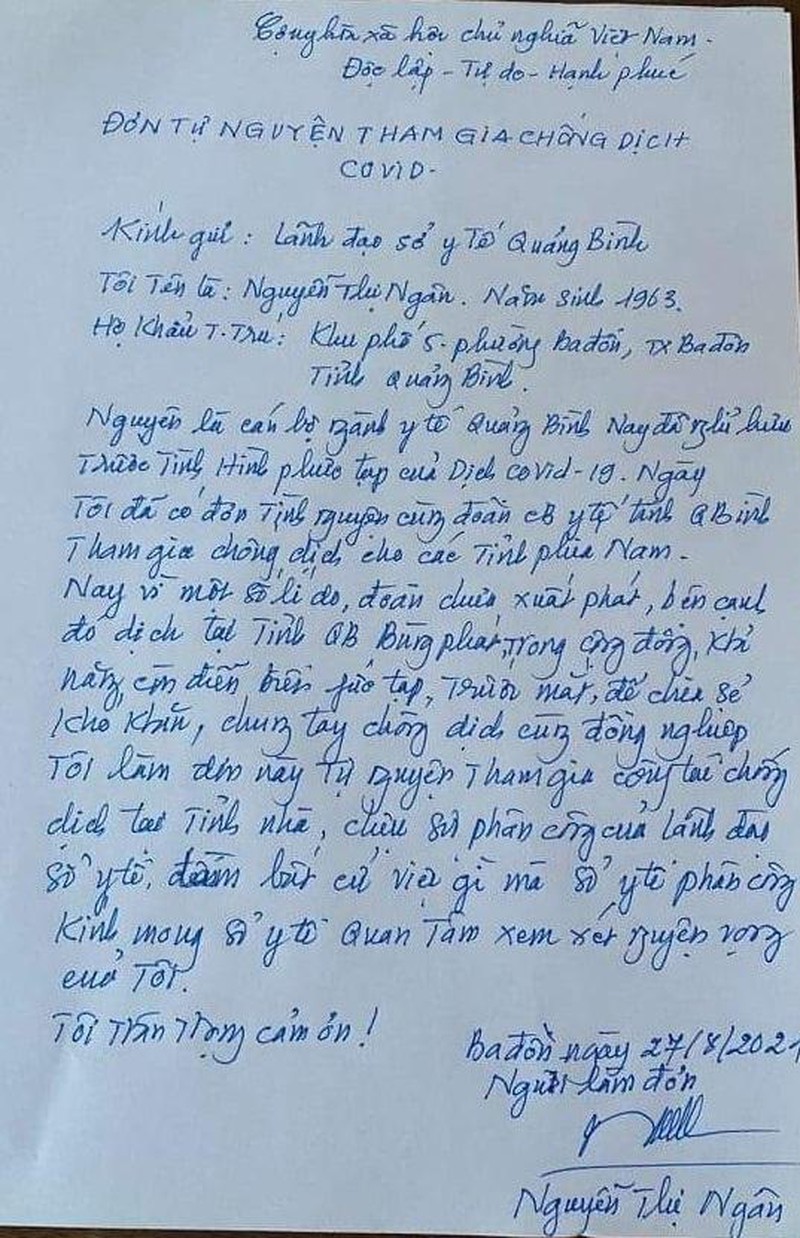 Cộng hòa xã hội chủ nghĩa Việt Nam -
Độc lập - Tự do - Hạnh phúc
ĐƠN TỰ NGUYỆN THAM GIA CHỐNG DỊCH
COVID-
Kính gửi : Lãnh đạo sở y Tế Quảng Bình
Tôi Tên là : Nguyễn Thị Ngân. Năm sinh 1963.
Hộ Khẩu T. Trú : Khu phố 5. phường Ba đồn, TX Ba đồn
Tỉnh Quảng Bình.
Nguyên là cán bộ ngành y tế Quảng Bình Nay đã nghỉ hưu
Trước Tình Hình phức tạp của Dịch covid-19. Ngày
Tôi đã có đơn Tình nguyện cùng đoàn CB y tế tỉnh QBình
Tham gia chống dịch cho các Tỉnh phía Nam -
Nay vì một số lí do, đoàn chưa xuất phát, bên cạnh
đó dịch tại Tỉnh QB Bùng phát, Trong cộng đồng, khả
năng còn diễn biến fức tạp, Trước mắt, để chia sẻ
khó khăn, chung tay chống dịch cùng đồng nghiệp
Tôi làm đơn này Tự nguyện Tham gia công tác chống
dịch tại Tỉnh nhà, chịu sự phân công của lãnh đạo
Sở y tế, làm bất cứ việc gì mà Sở y tế phân công
Kính mong Sở y tế Quan Tâm xem xét nguyện vọng
của Tôi.
Tôi Trân Trọng cảm ơn !
Ba đồn ngày 27/8/2021
Người làm đơn
Nguyễn Thị Ngân